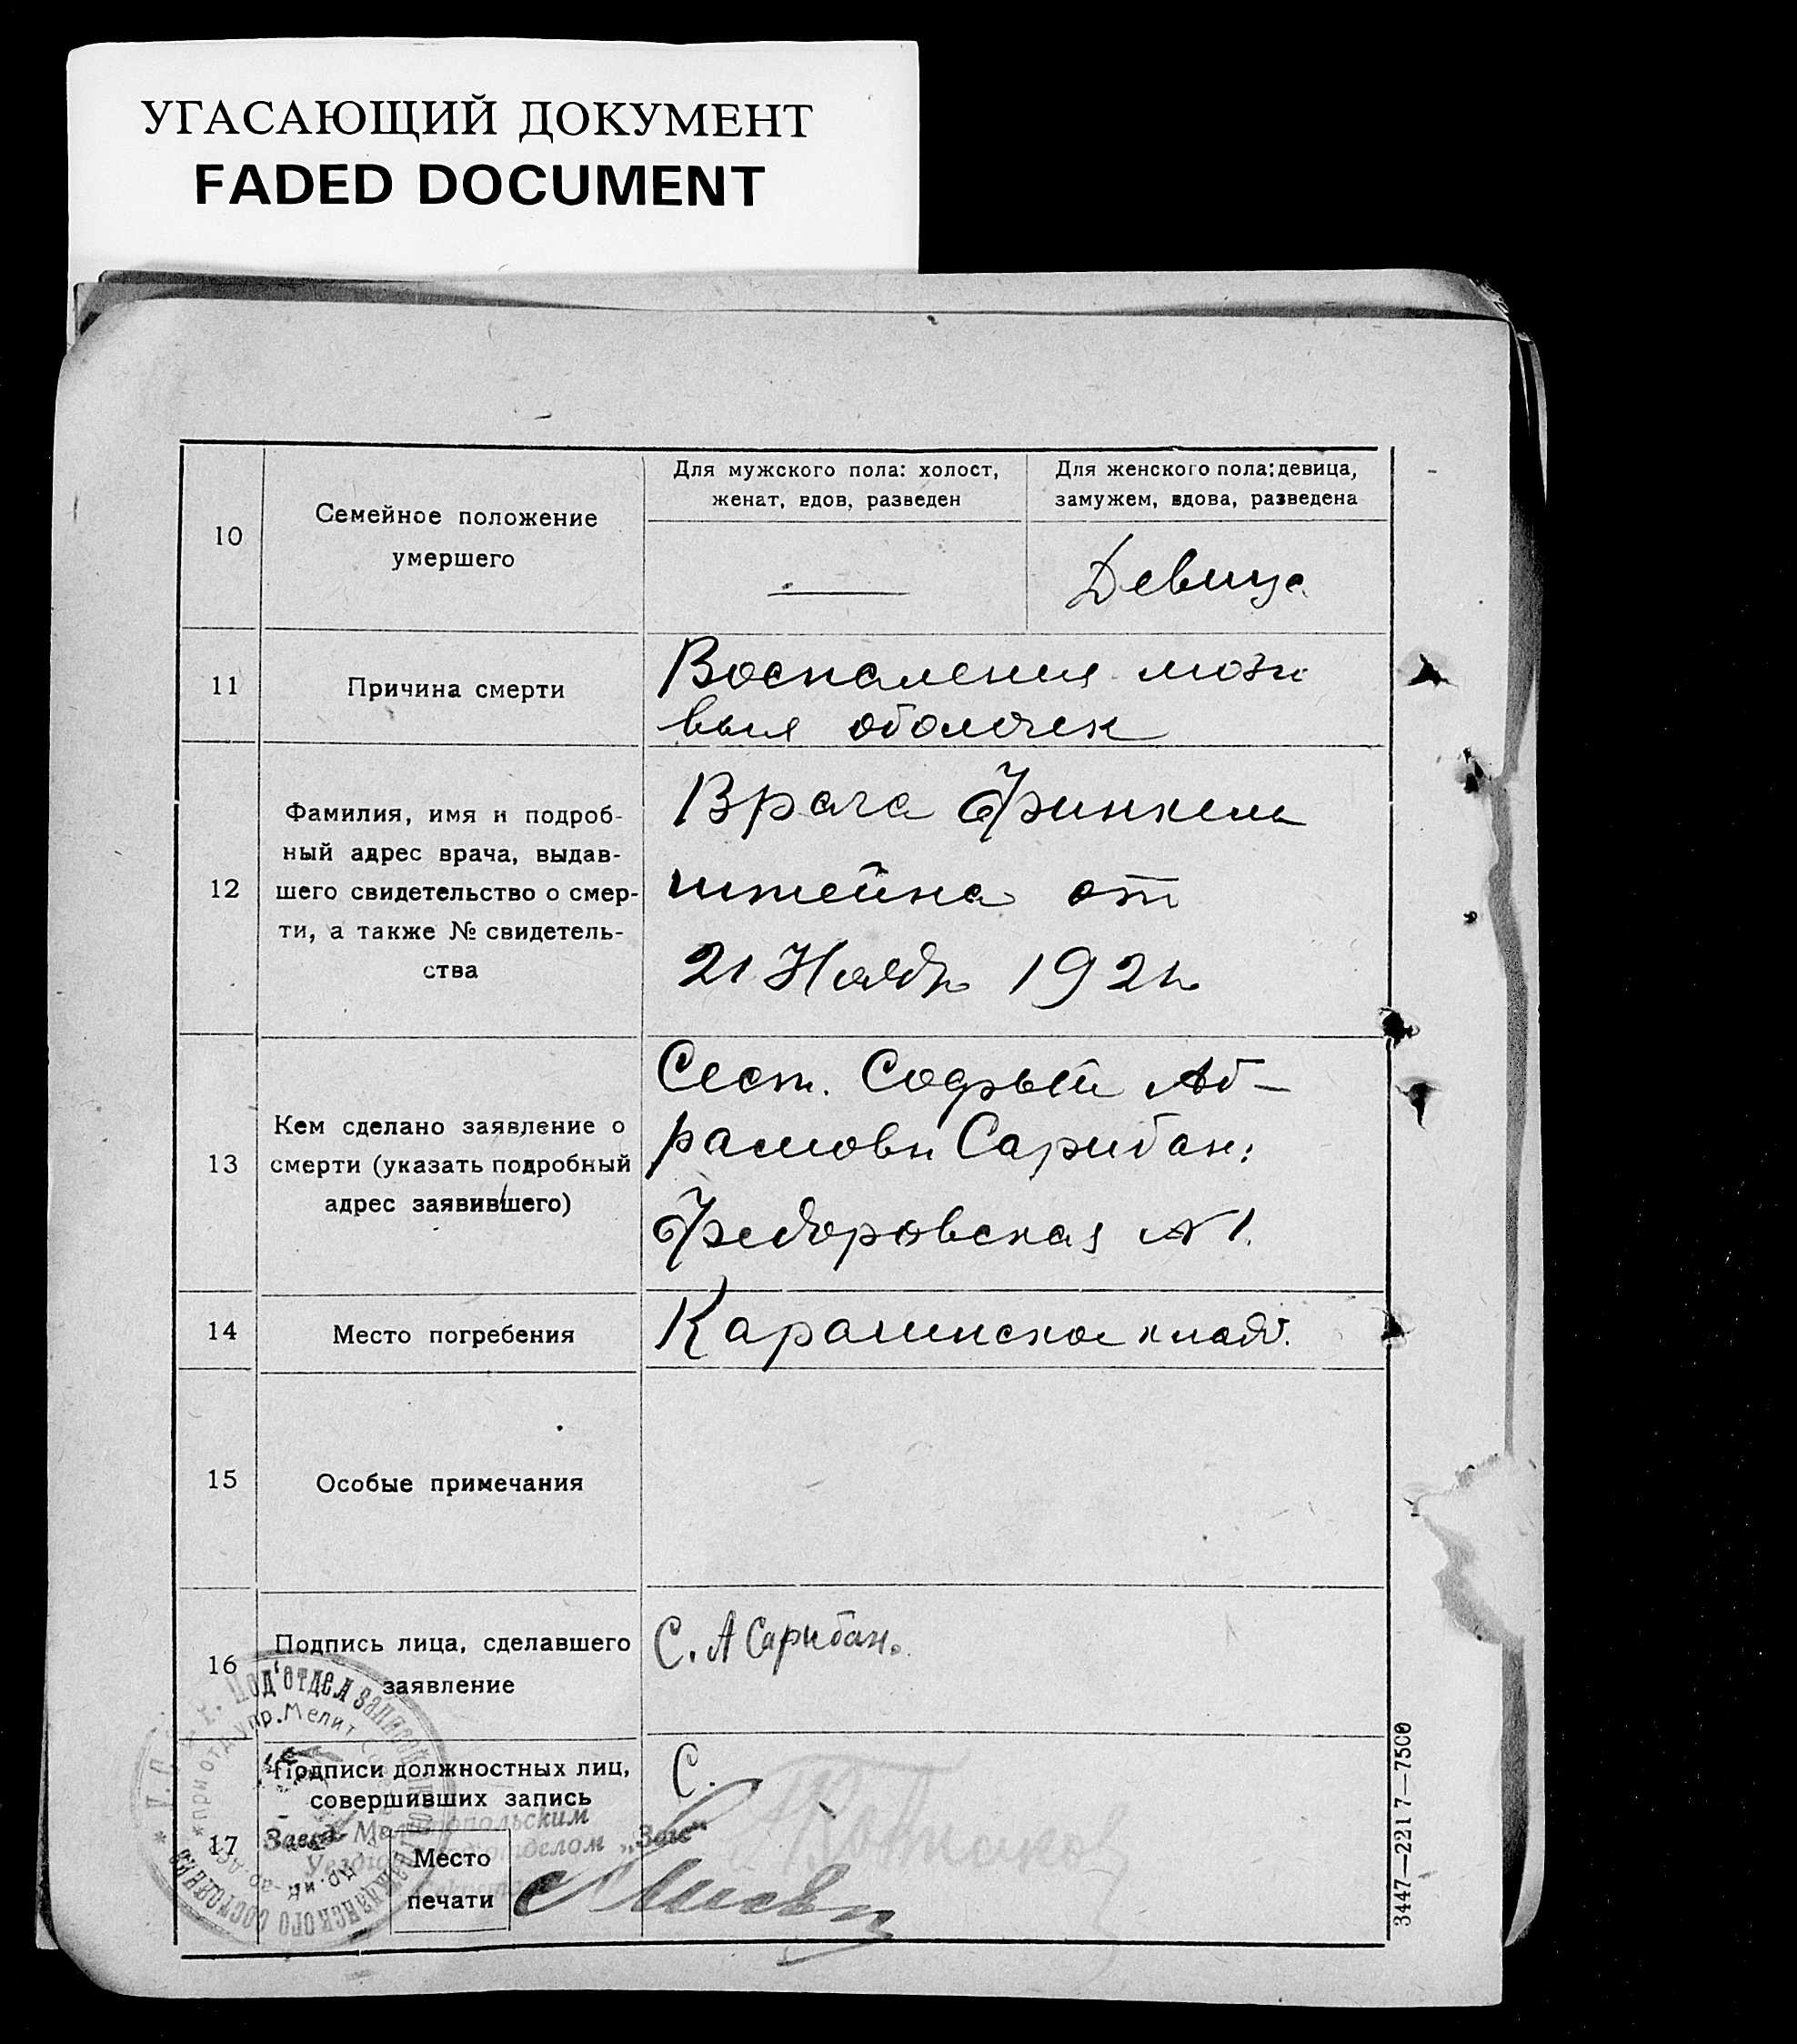 УГАСАЮЩИЙ ДОКУМЕНТ
FADED DOCUMENT
10
Семейное положение
умершего
Для мужского пола: холост,
женат, вдов, разведен
Для женского пола: девица,
замужем, вдова, разведена
Девица
11
Причина смерти
Воспаления мозго
выя оболочек
12
Фамилия, имя и подроб-
ный адрес врача, выдав-
шего свидетельство о смер-
ти, а также № свидетель-
ства
Врача Финкель
штейна от
21 Ноябр 192
13
Кем сделано заявление о
смерти (указать подробный
адрес заявившего)
Сест. Софьей Аб-
рамовн Сарибан:
Федоровская № 1.
14
Место погребения
Караимское кладб.
15
Особые примечания
16
Подпись лица, сделавшего
заявление
С. А Сарибан.
17
Подписи должностных лиц,
совершивших запись
С.
Место
печати
Под'отдел записей гражданского состояния
при отд. упр. Мелит
Завед. Мелитопольским
Уездн. подотделом „Загс"
3447—2217—7500